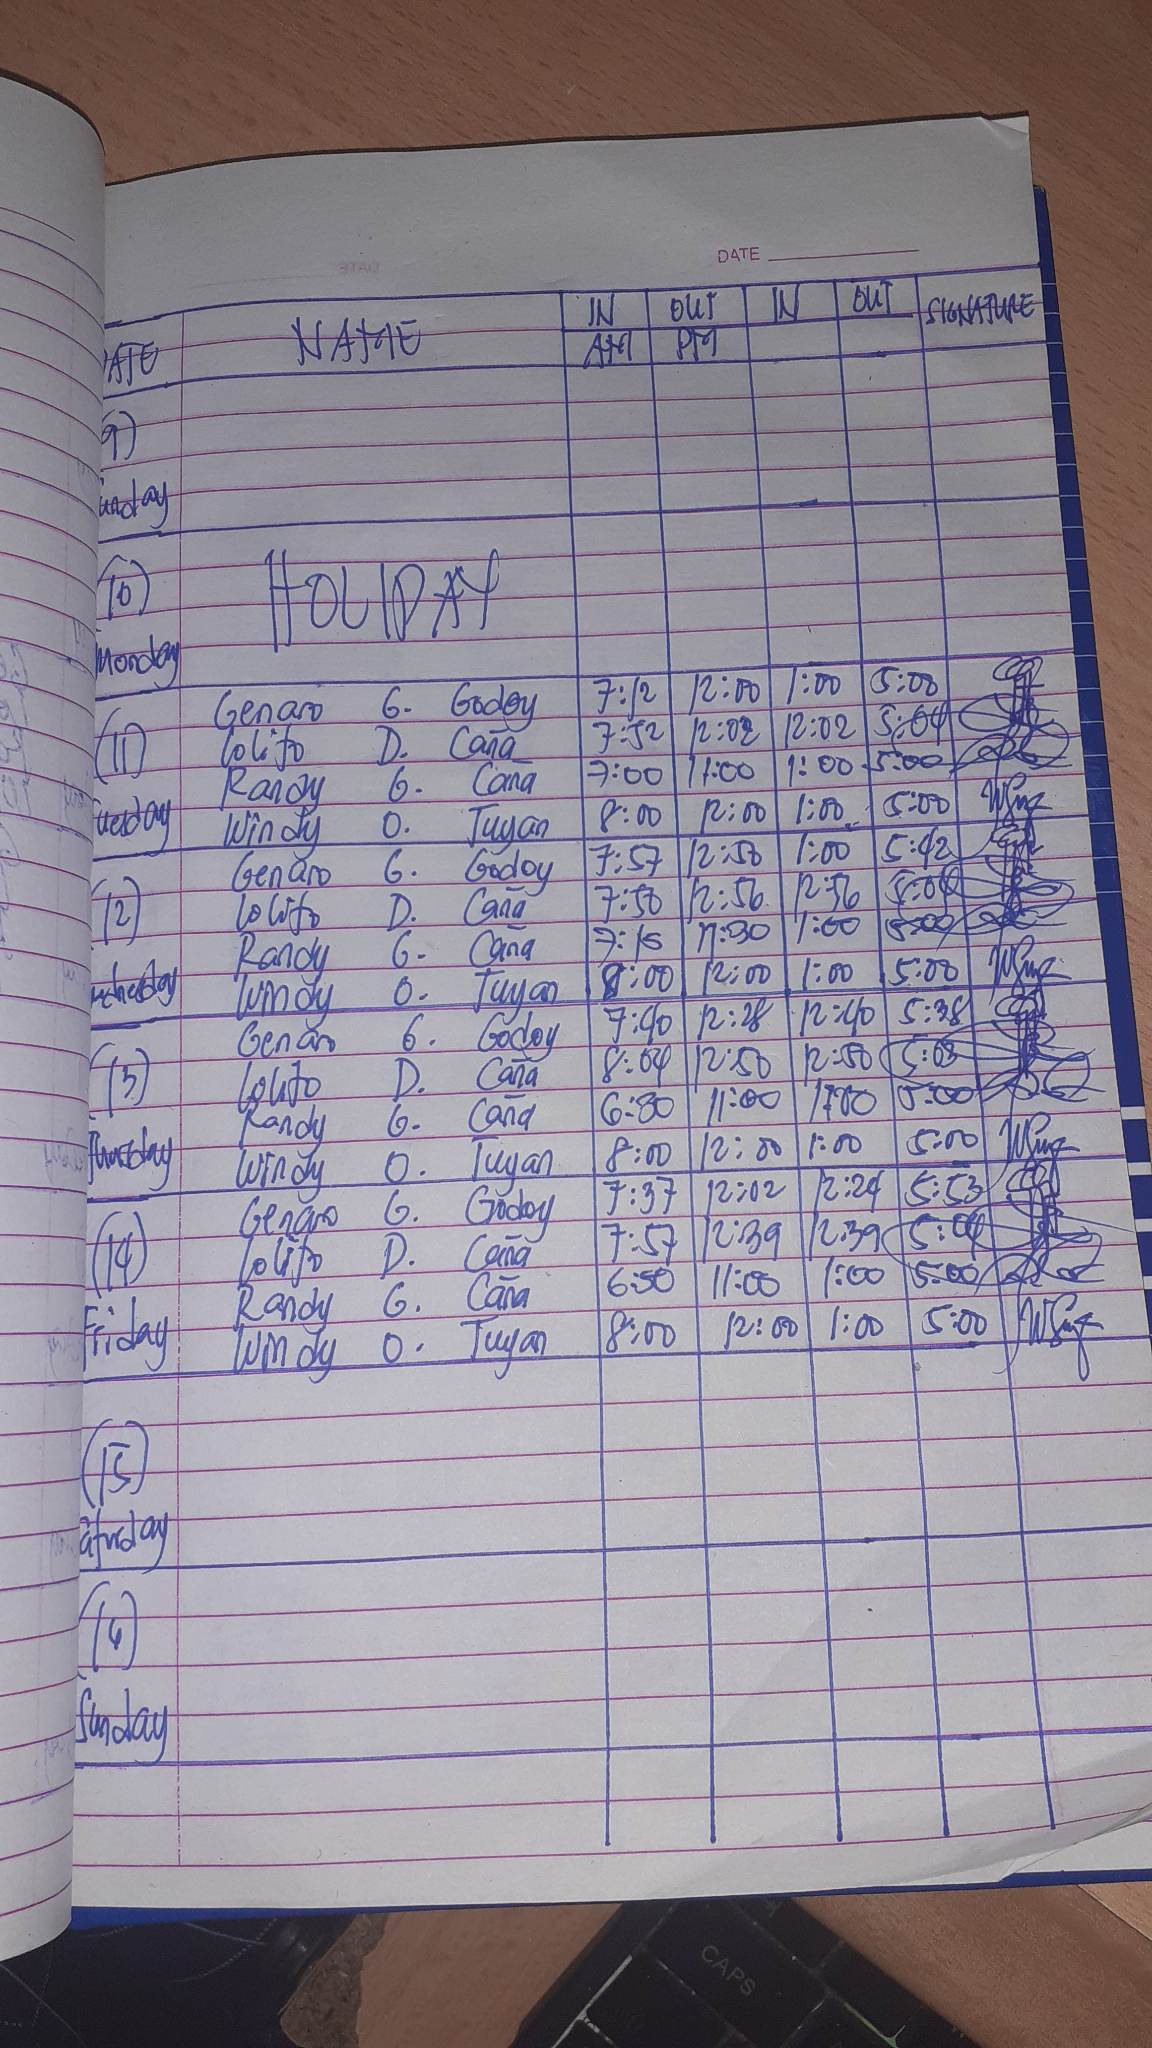 DATE
IN OUT IN OUT SIGNATURE
ATE NAME AM PM
9)
unday
(10) HOLIDAY
Monday
Genaro G. Godoy 7:12 12:00 1:00 5:00
(11) Lolito D. Caña 7:52 12:02 12:02 5:04
Randy G. Caña 7:00 11:00 1:00 5:00
uesday Windy O. Tuyan 8:00 12:00 1:00 5:00
Genaro G. Godoy 7:57 12:50 1:00 5:42
(12) Lolito D. Caña 7:50 12:56 12:56 5:04
Randy G. Caña 7:15 11:30 1:00 5:00
Windy O. Tuyan 8:00 12:00 1:00 5:00
Genaro G. Godoy 7:40 12:28 12:40 5:38
(13) Lolito D. Caña 8:04 12:50 12:50 5:03
Randy G. Caña 6:30 11:00 5:00
Thursday Windy O. Tuyan 8:00 12:00 1:00 5:00
Genaro G. Godoy 7:37 12:02 12:24 5:53
(14) Lolito D. Caña 7:57 12:39 12:39 5:04
Randy G. Caña 6:50 11:00 1:00 5:00
Friday Windy O. Tuyan 8:00 12:00 1:00 5:00
(15)
aturday
(16)
Sunday
CAPS